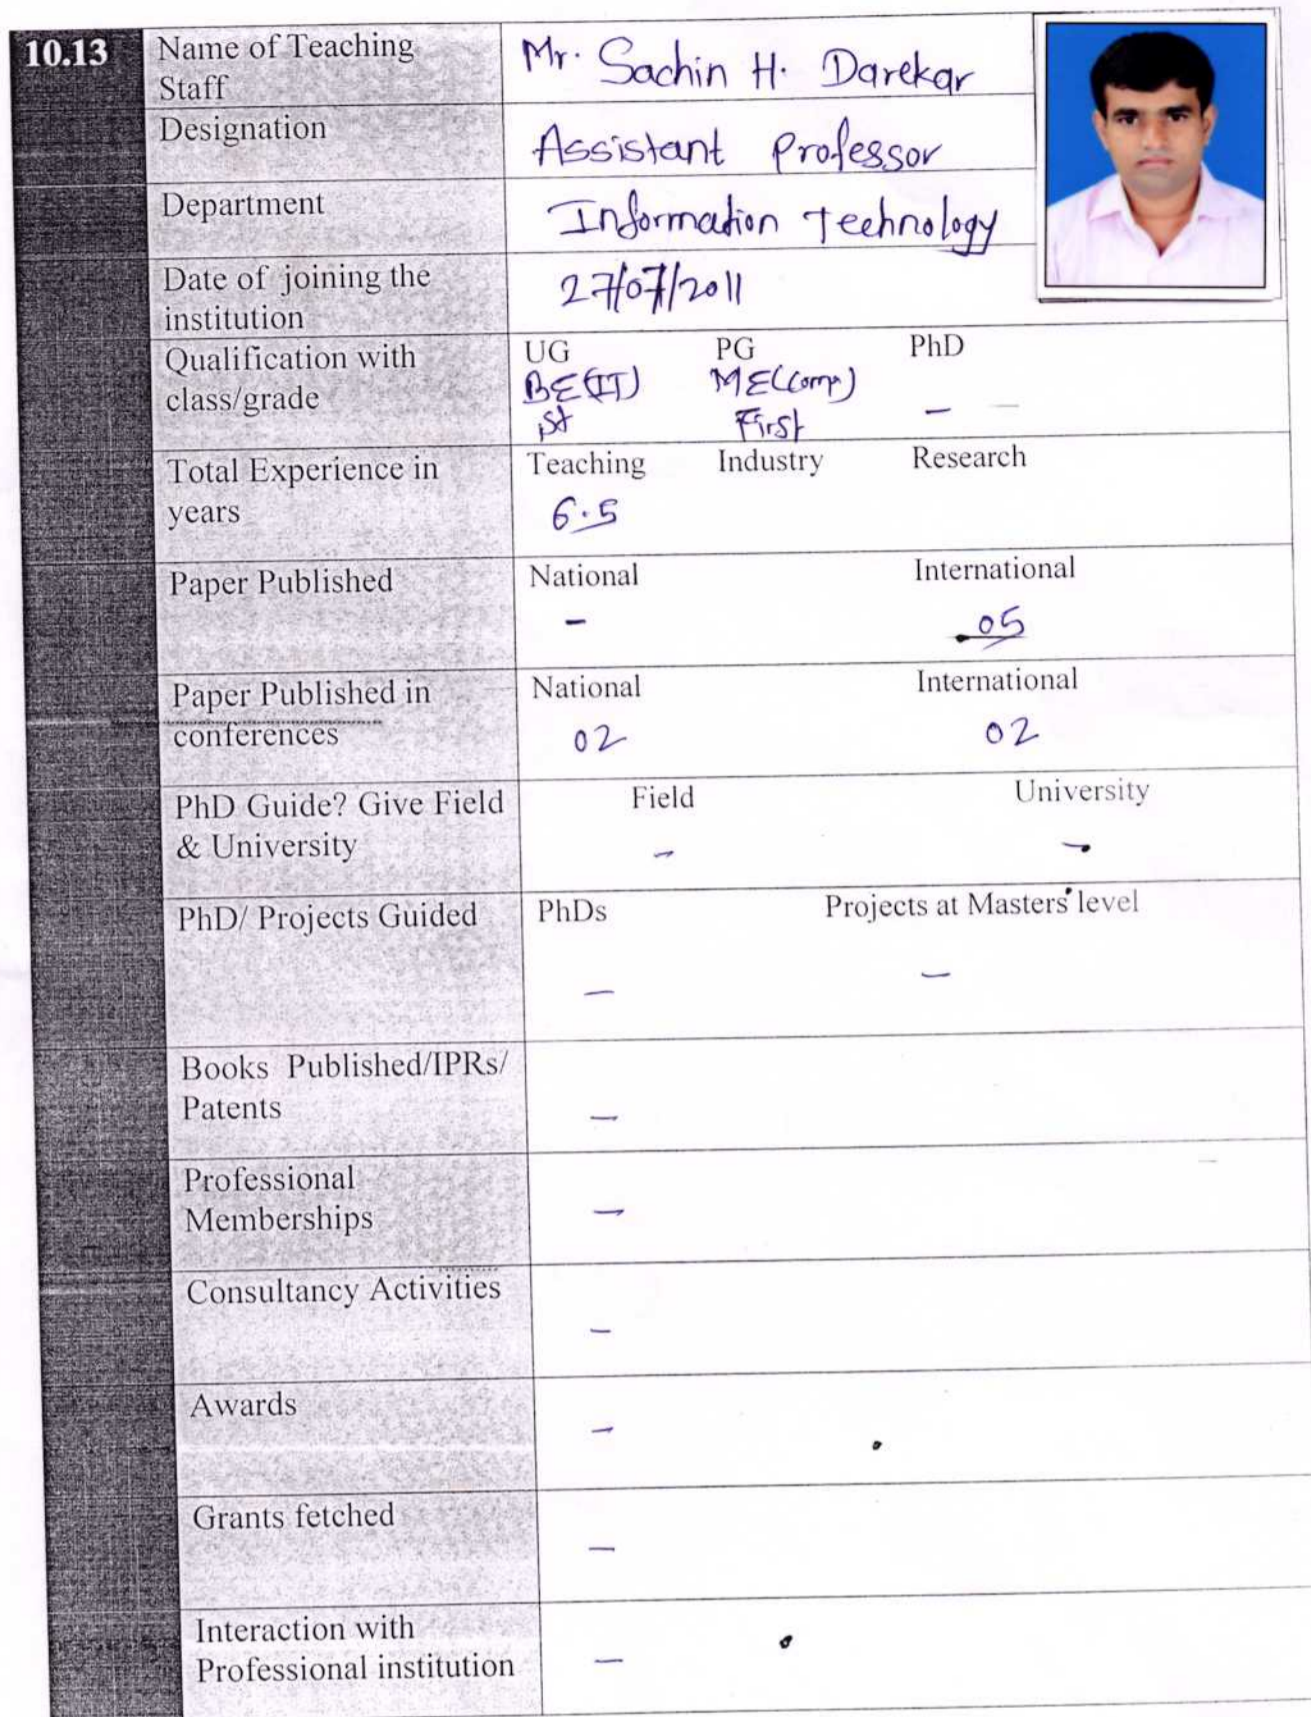 10.13 Name of Teaching Staff Mr. Sachin H. Darekar
Designation Assistant Professor
Department Information Technology
Date of joining the institution 27/07/2011
Qualification with class/grade
UG PG PhD
BE(IT) ME(Comp) -
1st First
Total Experience in years
Teaching Industry Research
6.5
Paper Published
National International
- 05
Paper Published in conferences
National International
02 02
PhD Guide? Give Field & University
Field University
- -
PhD/ Projects Guided
PhDs Projects at Masters' level
- -
Books Published/IPRs/ Patents
-
Professional Memberships
-
Consultancy Activities
-
Awards
-
Grants fetched
-
Interaction with Professional institution
-